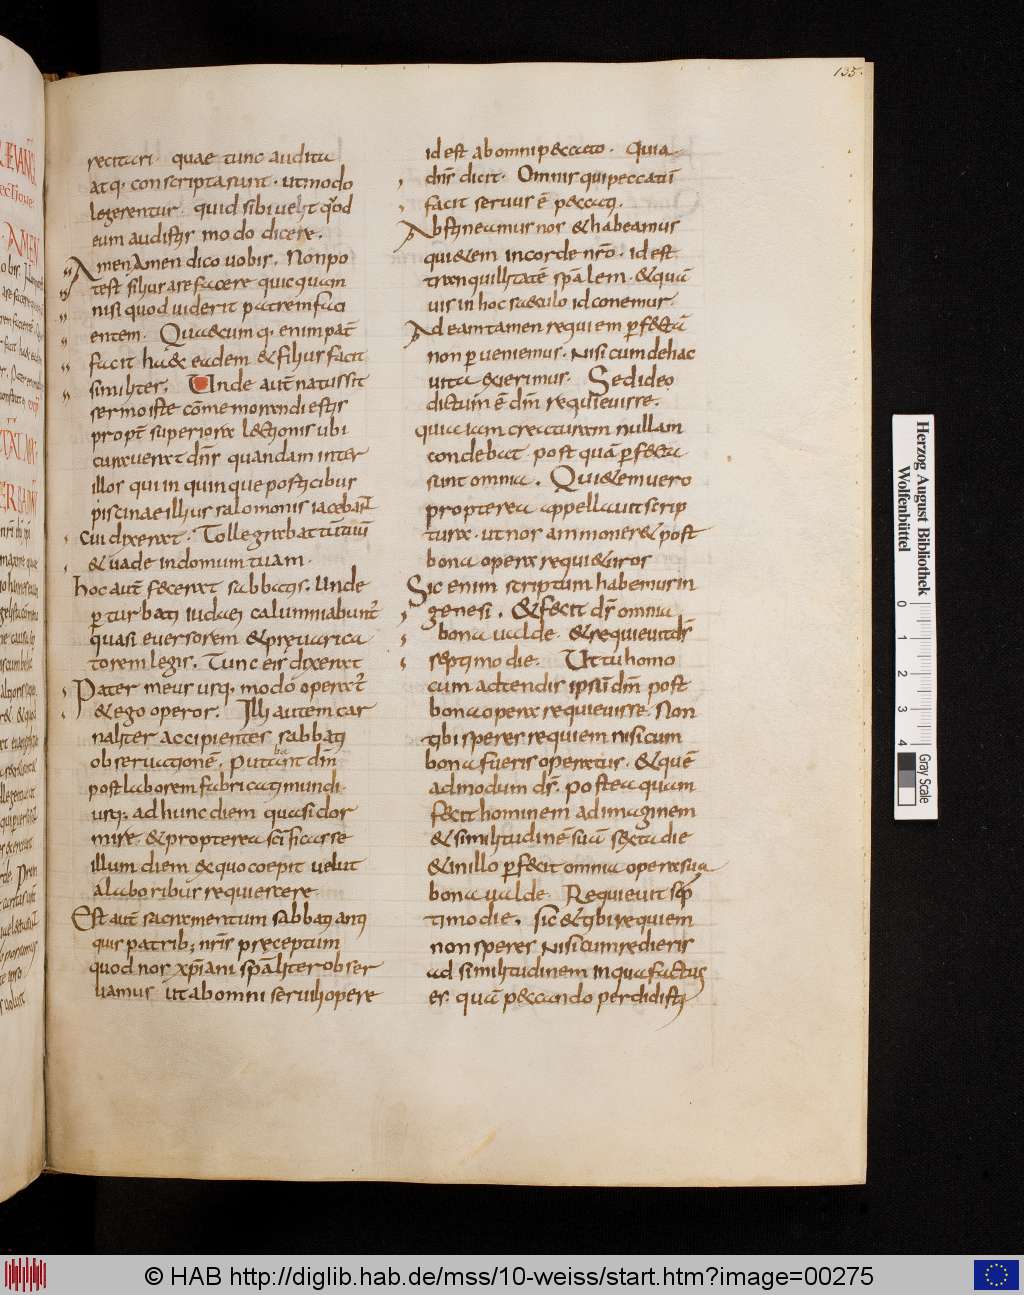 135.
recitari. quae tunc audita
atq; conscripta sunt. ut modo
legerentur. quid sibi ueht qđod
eum audistis modo dicere.
Amen Amen dico uobis. Non po
test filius a se facere quicquam
nisi quod uiderit patrem faci
entem. Quaecumq; enim pat̄
facit haec eadem & filius facit
similiter. Unde aut̄ natus sit
sermo iste com̄emorandi estis
propt̄ superiorae lectionis ubi
curauerat dn̄s quandam inter
illos qui in quinque porticibus
piscinae illius salomonis iacebant
cui dixerat. Tolle grabattū tuū
& uade in domum tuam.
hoc aut̄ fecerat sabbatis. Unde
ꝑturbati iudaei calumniabunt̄
quasi euersorem & preuarica
torem legis. Tunc eis dixerat
Pater meus usq; modo operat̄
& ego operor. Illi autem car
naliter accipientes sabbati
obseruationē. putabant dn̄m
post laborem fabricati mundi
usq; ad hunc diem quasi dor
mire. & propterea scīficasse
illum diem & quo coepit uelut
a laboribus requiescere.
Est aut̄ sacramentum sabbati anti
quis patrib; nr̄is preceptum
quod nos xp̄iani sp̄aliter obser
uamus ut ab omni seruili opere
id est ab omni peccato. Quia
dn̄s dicit. Omnis qui peccatū
facit seruus ē peccati.
Abstineamus nos & habeamus
quietem in corde nr̄o. id est
tranquillitatē sp̄alem. & quā
uis in hoc saeculo id conemur
Ad eam tamen requiem ꝑfectā
non ꝑueniemus. Nisi cum de hac
uita exierimus. Sed ideo
dictum ē dn̄m requieuisse.
quia iam creaturam nullam
condebat. post quā ꝑfecta
sunt omnia. Quietem uero
propterea appellauit scrip
tura. ut nos ammoneret post
bona opera requieturos
Sic enim scriptum habemus in
genesi. & fecit ds̄ omnia
bona ualde. & requieuit ds̄
septimo die. Ut tu homo
cum adtendis ipsū dm̄ post
bona opera requieuisse. Non
tibi speres requiem nisi cum
bona fueris operatus. & quē
admodum ds̄. postea quam
fecit hominem ad imaginem
& similitudinē suā sexta die
& in illo ꝑfecit omnia opera sua
bona ualde. Requieuit sep
timo die. sic & tibi requiem
non speres nisi cum redieris
ad similitudinem in qua factus
es. quā peccando perdidisti
Herzog August Bibliothek
Wolfenbüttel
0 1 2 3 4
Gray Scale
© HAB http://diglib.hab.de/mss/10-weiss/start.htm?image=00275